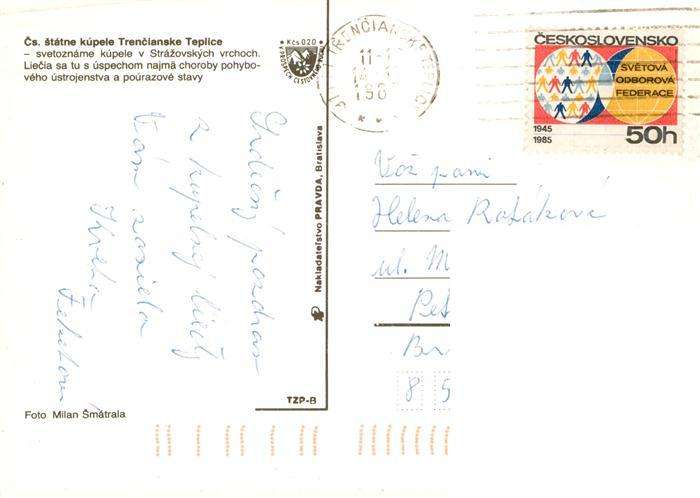 Čs. štátne kúpele Trenčianske Teplice
– svetoznáme kúpele v Strážovských vrchoch.
Liečia sa tu s úspechom najmä choroby pohybo-
vého ústrojenstva a poúrazové stavy
Kčs 0,20
TRENČIANSKE TEPLICE
11-
ČESKOSLOVENSKO
SVĚTOVÁ
ODBOROVÁ
FEDERACE
1945
1985
50h
Srdečný pozdrav
z kúpeľnej liečby
Vám zasiela
Kveta
Nakladateľstvo PRAVDA, Bratislava
TZP-B
Vážpani
Helena Rosáková
ul. M
Pet
8 5
Foto Milan Šmátrala